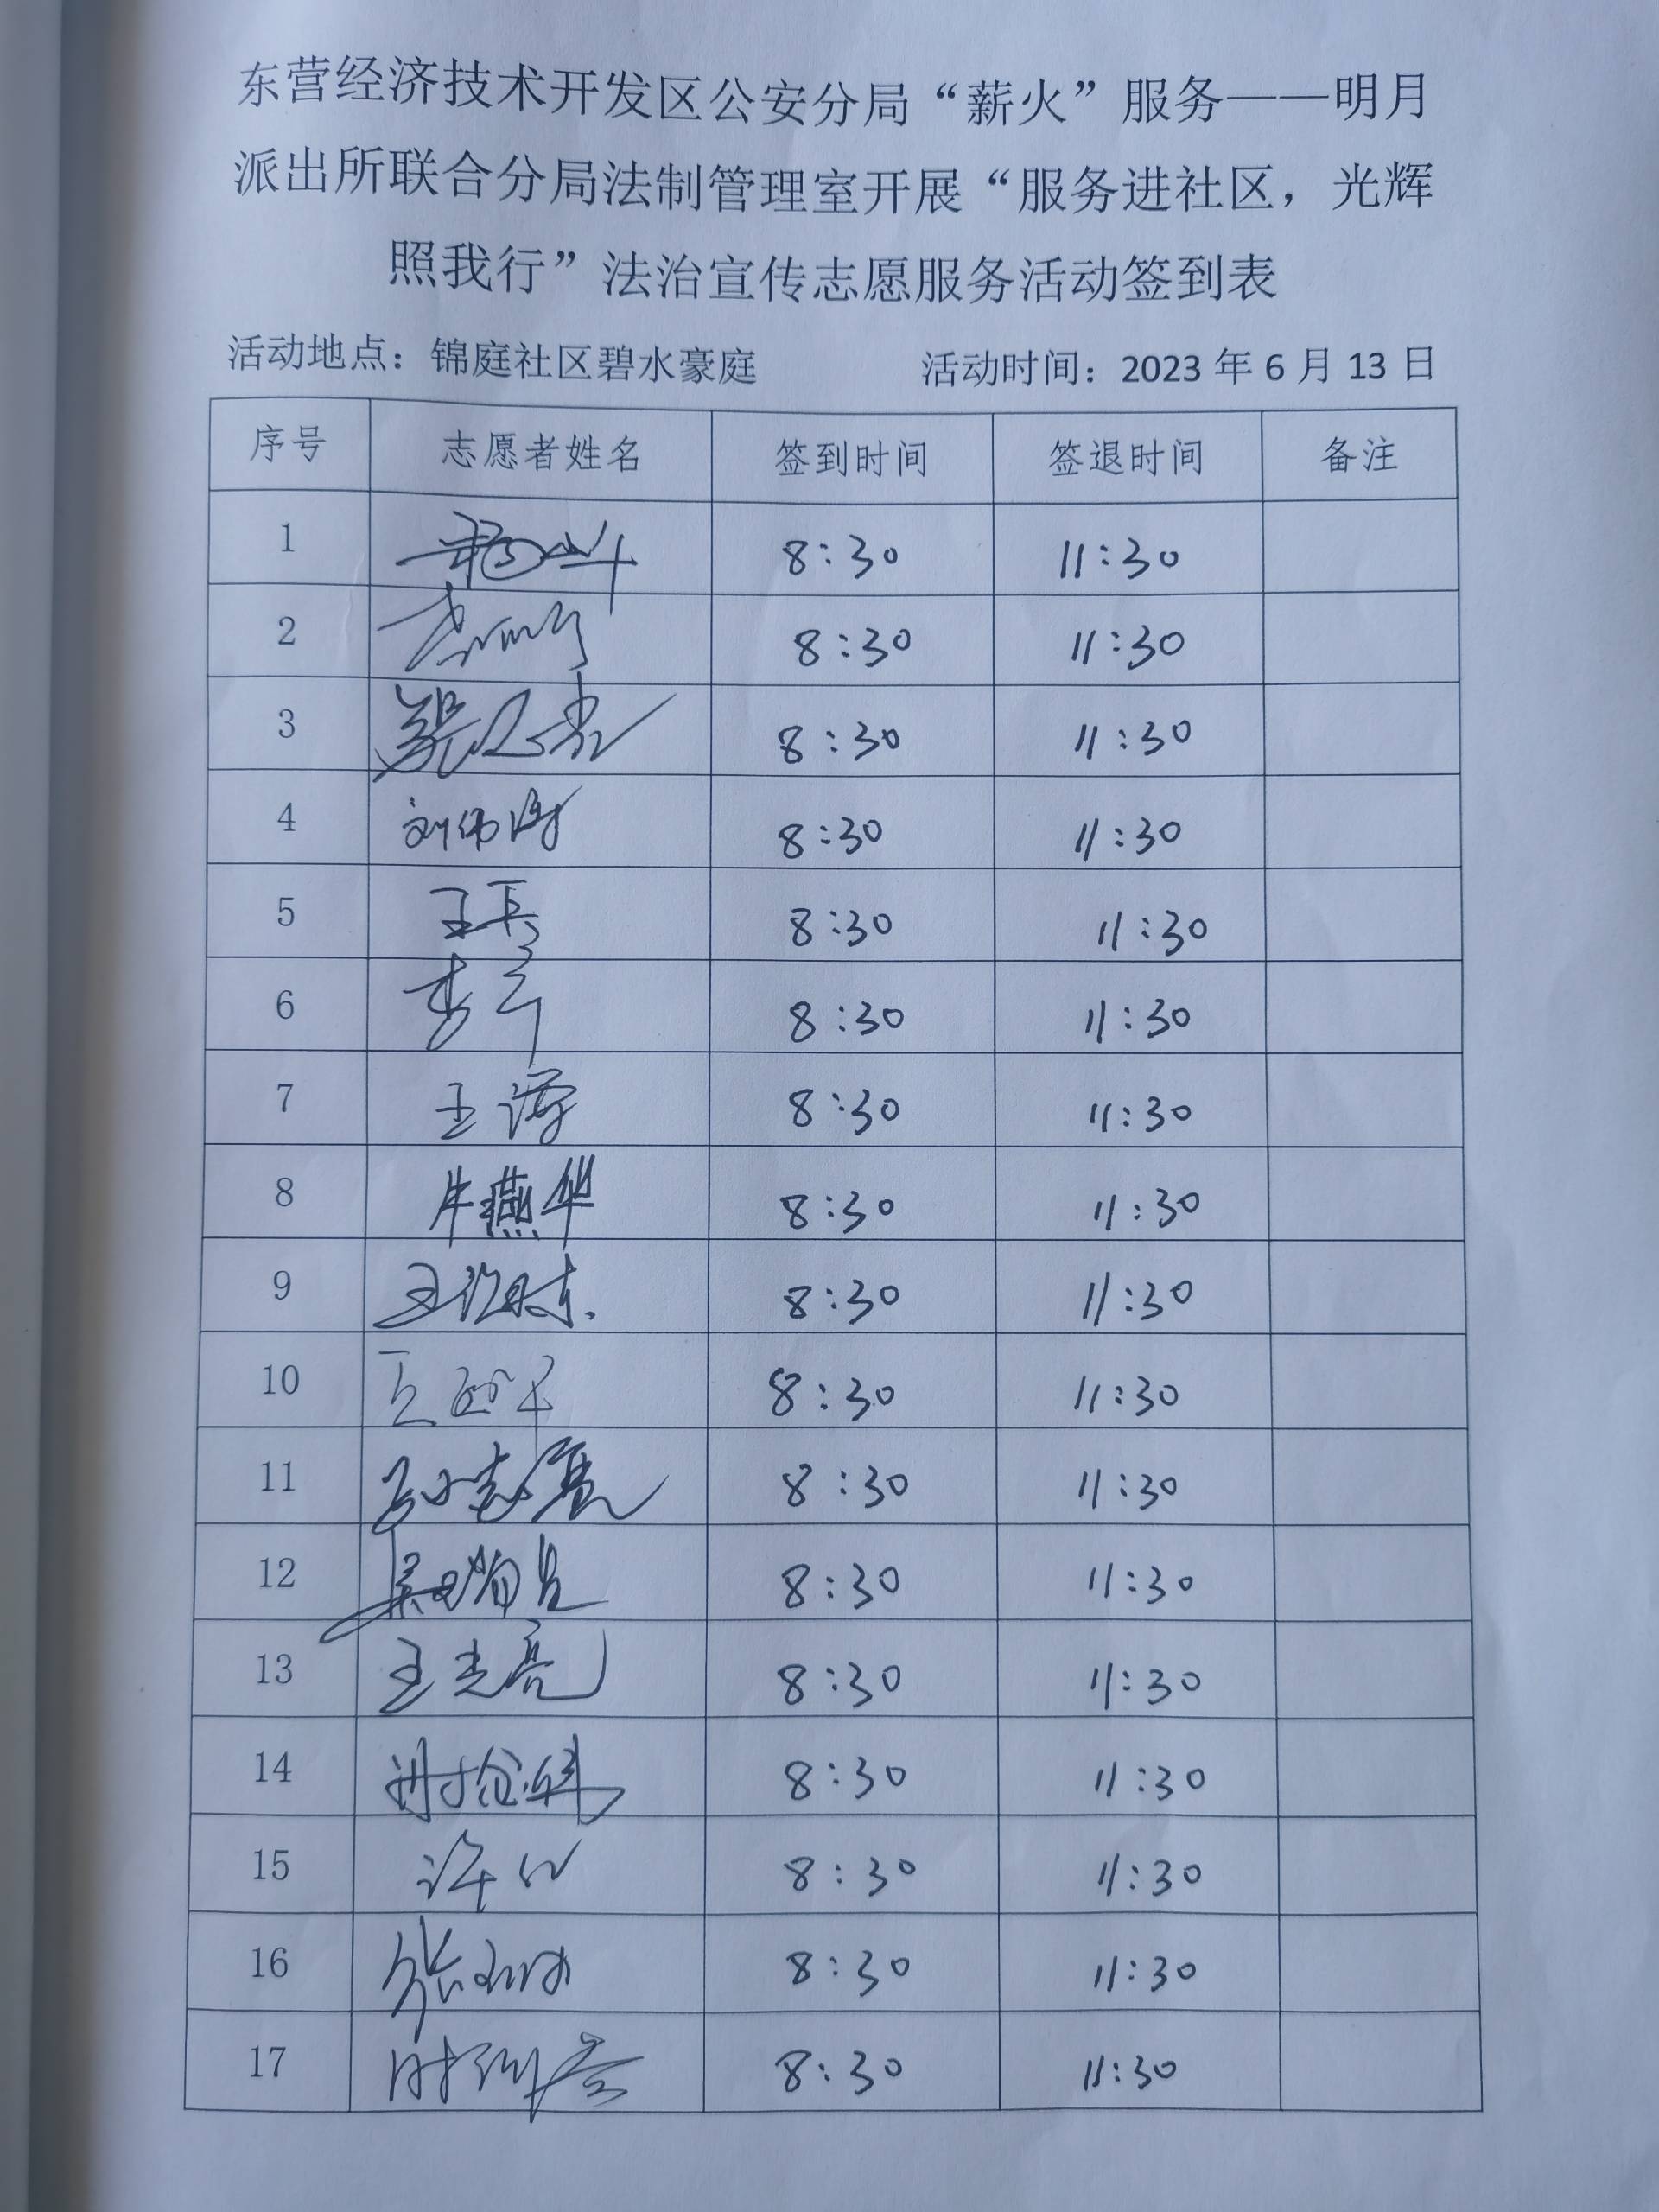 东营经济技术开发区公安分局“薪火”服务——明月
派出所联合分局法制管理室开展“服务进社区，光辉
照我行”法治宣传志愿服务活动签到表
活动地点：锦庭社区碧水豪庭 活动时间：2023 年 6 月 13 日
序号 志愿者姓名 签到时间 签退时间 备注
1 8:30 11:30
2 8:30 11:30
3 8:30 11:30
4 刘伟涛 8:30 11:30
5 王兵 8:30 11:30
6 8:30 11:30
7 王涛 8:30 11:30
8 牛燕华 8:30 11:30
9 8:30 11:30
10 8:30 11:30
11 孙志亮 8:30 11:30
12 8:30 11:30
13 王光亮 8:30 11:30
14 8:30 11:30
15 8:30 11:30
16 8:30 11:30
17 8:30 11:30